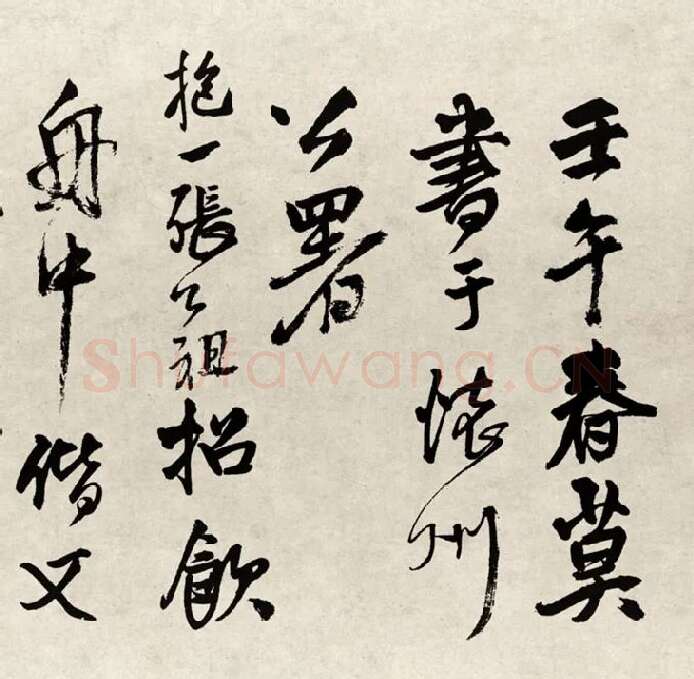 壬午春莫
書于懷州
公署
抱一張公祖招飲
舟中偕文
Shufawang.CN